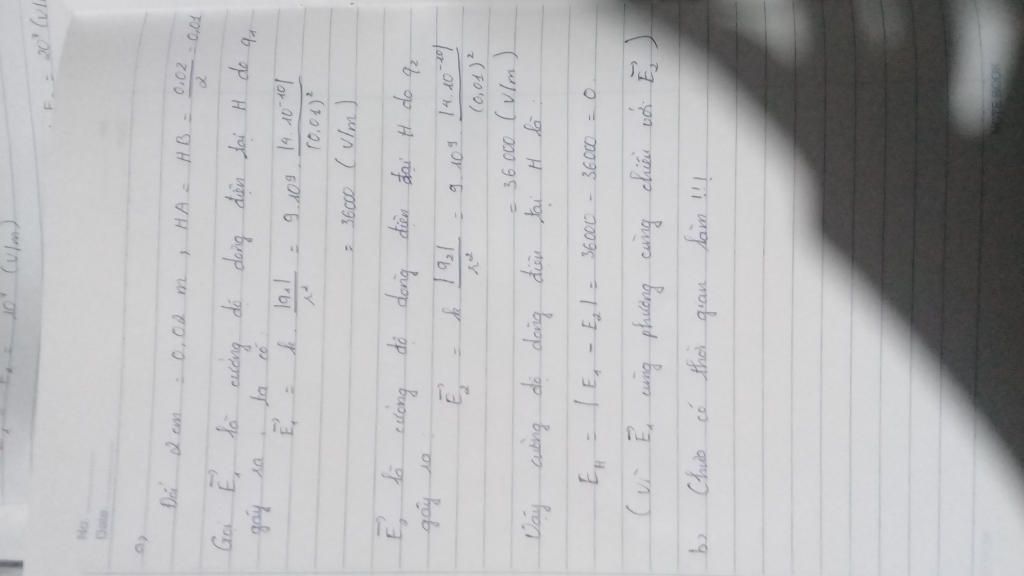 No.
Date
a)
Đổi 2 cm = 0.02 m , HA = HB = 0.02 / 2 = 0.01
Gọi E₁ là cường độ dòng điện tại H do q₁
gây ra , ta có
E₁ = k . |q₁| / r² = 9.10⁹ . |4.10⁻¹⁰| / (0.01)²
= 36000 ( V/m )
E₂ là cường độ dòng điện tại H do q₂
gây ra
E₂ = k |q₂| / r² = 9.10⁹ . |4.10⁻¹⁰| / (0,01)²
= 36000 ( V/m )
Vậy cường độ dòng điện tại H là :
E_H = | E₁ - E₂ | = 36000 - 36000 = 0.
( vì E₁ cùng phương cùng chiều với E₂ )
b) Chưa có thời gian làm !!!